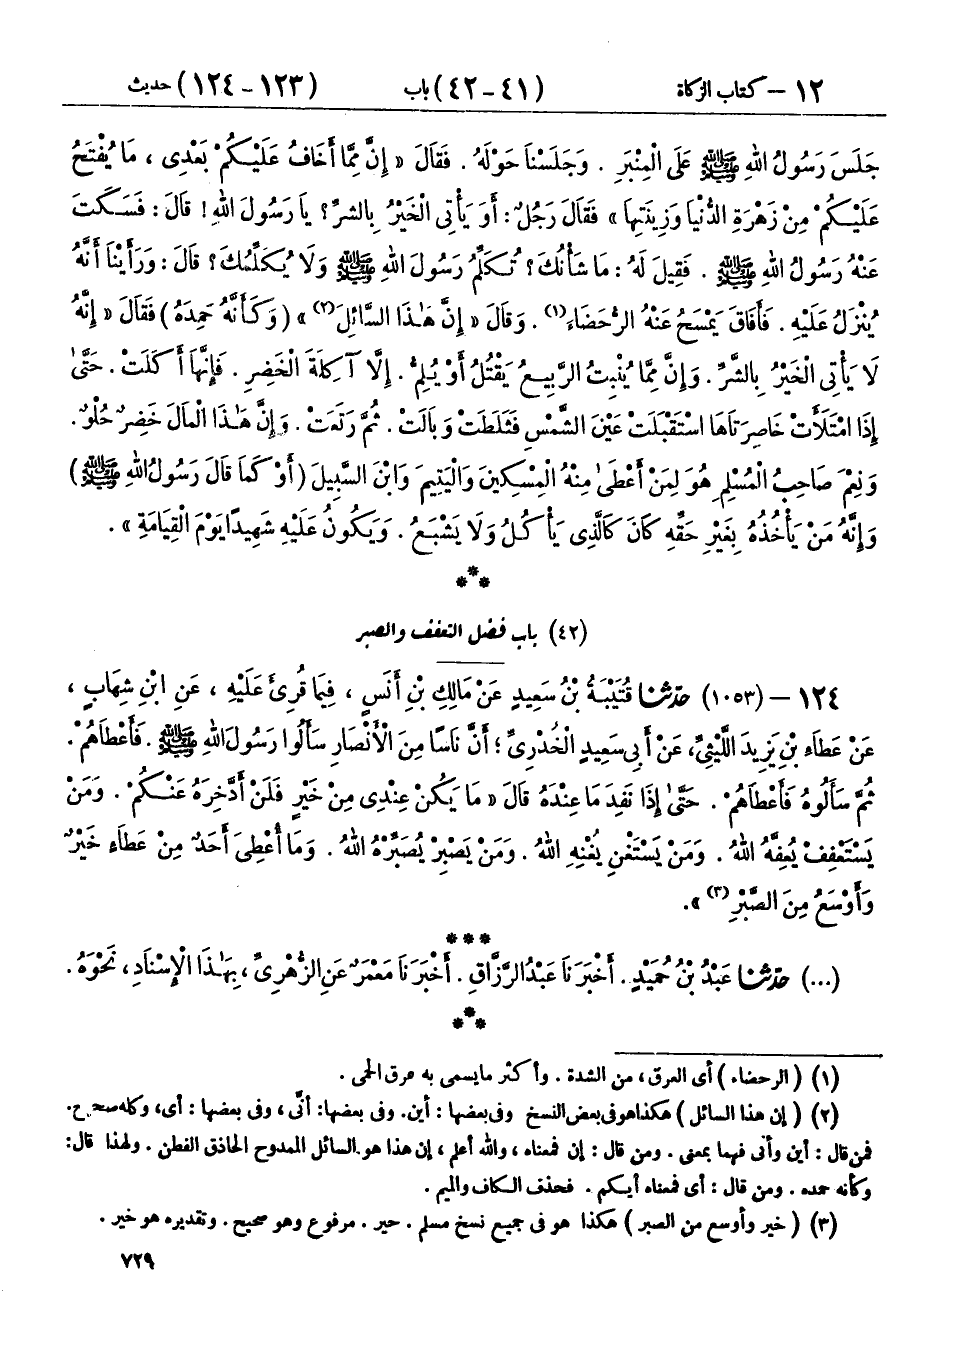 ١٢ – كتاب الزكاة (٤١ - ٤٢) باب (١٢٣ - ١٢٤) حديث
جَلَسَ رَسُولُ اللهِ ﷺ عَلَى الْمِنْبَرِ . وَجَلَسْنَا حَوْلَهُ . فَقَالَ « إِنَّ مِمَّا أَخَافُ عَلَيْكُمْ بَعْدِى ، مَا يُفْتَحُ
عَلَيْكُمْ مِنْ زَهْرَةِ الدُّنْيَا وَزِينَتِهَا » فَقَالَ رَجُلٌ : أَوَ يَأْتِى الْخَيْرُ بِالشَّرِّ؟ يَا رَسُولَ اللهِ ! قَالَ : فَسَكَتَ
عَنْهُ رَسُولُ اللهِ ﷺ . فَقِيلَ لَهُ : مَا شَأْنُكَ ؟ تُكَلِّمُ رَسُولَ اللهِ ﷺ وَلَا يُكَلِّمُكَ ؟ قَالَ : وَرَأَيْنَا أَنَّهُ
يُنْزَلُ عَلَيْهِ . فَأَفَاقَ يَمْسَحُ عَنْهُ الرُّحَضَاءَ (١) . وَقَالَ « إِنَّ هَٰذَا السَّائِلَ (٢) » ( وَكَأَنَّهُ حَمِدَهُ ) فَقَالَ « إِنَّهُ
لَا يَأْتِى الْخَيْرُ بِالشَّرِّ . وَإِنَّ مِمَّا يُنْبِتُ الرَّبِيعُ يَقْتُلُ أَوْ يُلِمُّ . إِلَّا آكِلَةَ الْخَضِرِ . فَإِنَّهَا أَكَلَتْ . حَتَّىٰ
إِذَا امْتَلَأَتْ خَاصِرَتَاهَا اسْتَقْبَلَتْ عَيْنَ الشَّمْسِ فَثَلَطَتْ وَبَالَتْ . ثُمَّ رَتَعَتْ . وَإِنَّ هَٰذَا الْمَالَ خَضِرٌ حُلْوٌ .
وَنِعْمَ صَاحِبُ الْمُسْلِمِ هُوَ لِمَنْ أَعْطَىٰ مِنْهُ الْمِسْكِينَ وَالْيَتِيمَ وَابْنَ السَّبِيلِ ( أَوْ كَمَا قَالَ رَسُولُ اللهِ ﷺ )
وَإِنَّهُ مَنْ يَأْخُذُهُ بِغَيْرِ حَقِّهِ كَانَ كَالَّذِى يَأْكُلُ وَلَا يَشْبَعُ . وَيَكُونُ عَلَيْهِ شَهِيدًا يَوْمَ الْقِيَامَةِ » .
***
(٤٢) باب فضل التعفف والصبر
١٢٤ – (١٠٥٣) حدّثنا قُتَيْبَةُ بْنُ سَعِيدٍ عَنْ مَالِكِ بْنِ أَنَسٍ ، فِيمَا قُرِئَ عَلَيْهِ ، عَنِ ابْنِ شِهَابٍ ،
عَنْ عَطَاءِ بْنِ يَزِيدَ اللَّيْثِىِّ ، عَنْ أَبِى سَعِيدٍ الْخُدْرِىِّ ؛ أَنَّ نَاسًا مِنَ الْأَنْصَارِ سَأَلُوا رَسُولَ اللهِ ﷺ . فَأَعْطَاهُمْ .
ثُمَّ سَأَلُوهُ فَأَعْطَاهُمْ . حَتَّىٰ إِذَا نَفِدَ مَا عِنْدَهُ قَالَ « مَا يَكُنْ عِنْدِى مِنْ خَيْرٍ فَلَنْ أَدَّخِرَهُ عَنْكُمْ . وَمَنْ
يَسْتَعْفِفْ يُعِفَّهُ اللهُ . وَمَنْ يَسْتَغْنِ يُغْنِهِ اللهُ . وَمَنْ يَصْبِرْ يُصَبِّرْهُ اللهُ . وَمَا أُعْطِىَ أَحَدٌ مِنْ عَطَاءٍ خَيْرٌ
وَأَوْسَعُ مِنَ الصَّبْرِ (٣) » .
***
(...) حدّثنا عَبْدُ بْنُ حُمَيْدٍ . أَخْبَرَنَا عَبْدُ الرَّزَّاقِ . أَخْبَرَنَا مَعْمَرٌ عَنِ الزُّهْرِىِّ ، بِهَٰذَا الْإِسْنَادِ ، نَحْوَهُ .
***
(١) ( الرحضاء ) أى العرق ، من الشدة . وأكثر مايسمى به عرق الحمى .
(٢) ( إن هذا السائل ) هكذا هو فى بعض النسخ وفى بعضها : أين . وفى بعضها : أنّى ، وفى بعضها : أى ، وكله صحيح .
فمن قال : أين وأنى فهما بمعنى . ومن قال : إن فمعناه ، والله أعلم ، إن هذا هو السائل الممدوح الحاذق الفطن . ولهذا قال :
وكأنه حمده . ومن قال : أى فمعناه أيكم . فحذف الكاف والميم .
(٣) ( خير وأوسع من الصبر ) هكذا هو فى جميع نسخ مسلم . خير . مرفوع وهو صحيح . وتقديره هو خير .
٧٢٩